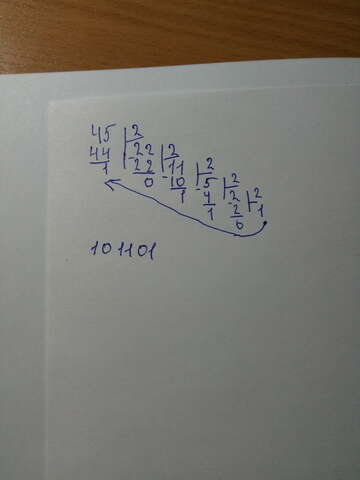 45 2
44 22 2
1 22 11 2
0 10 5 2
1 4 2 2
1 2 1
0
101101